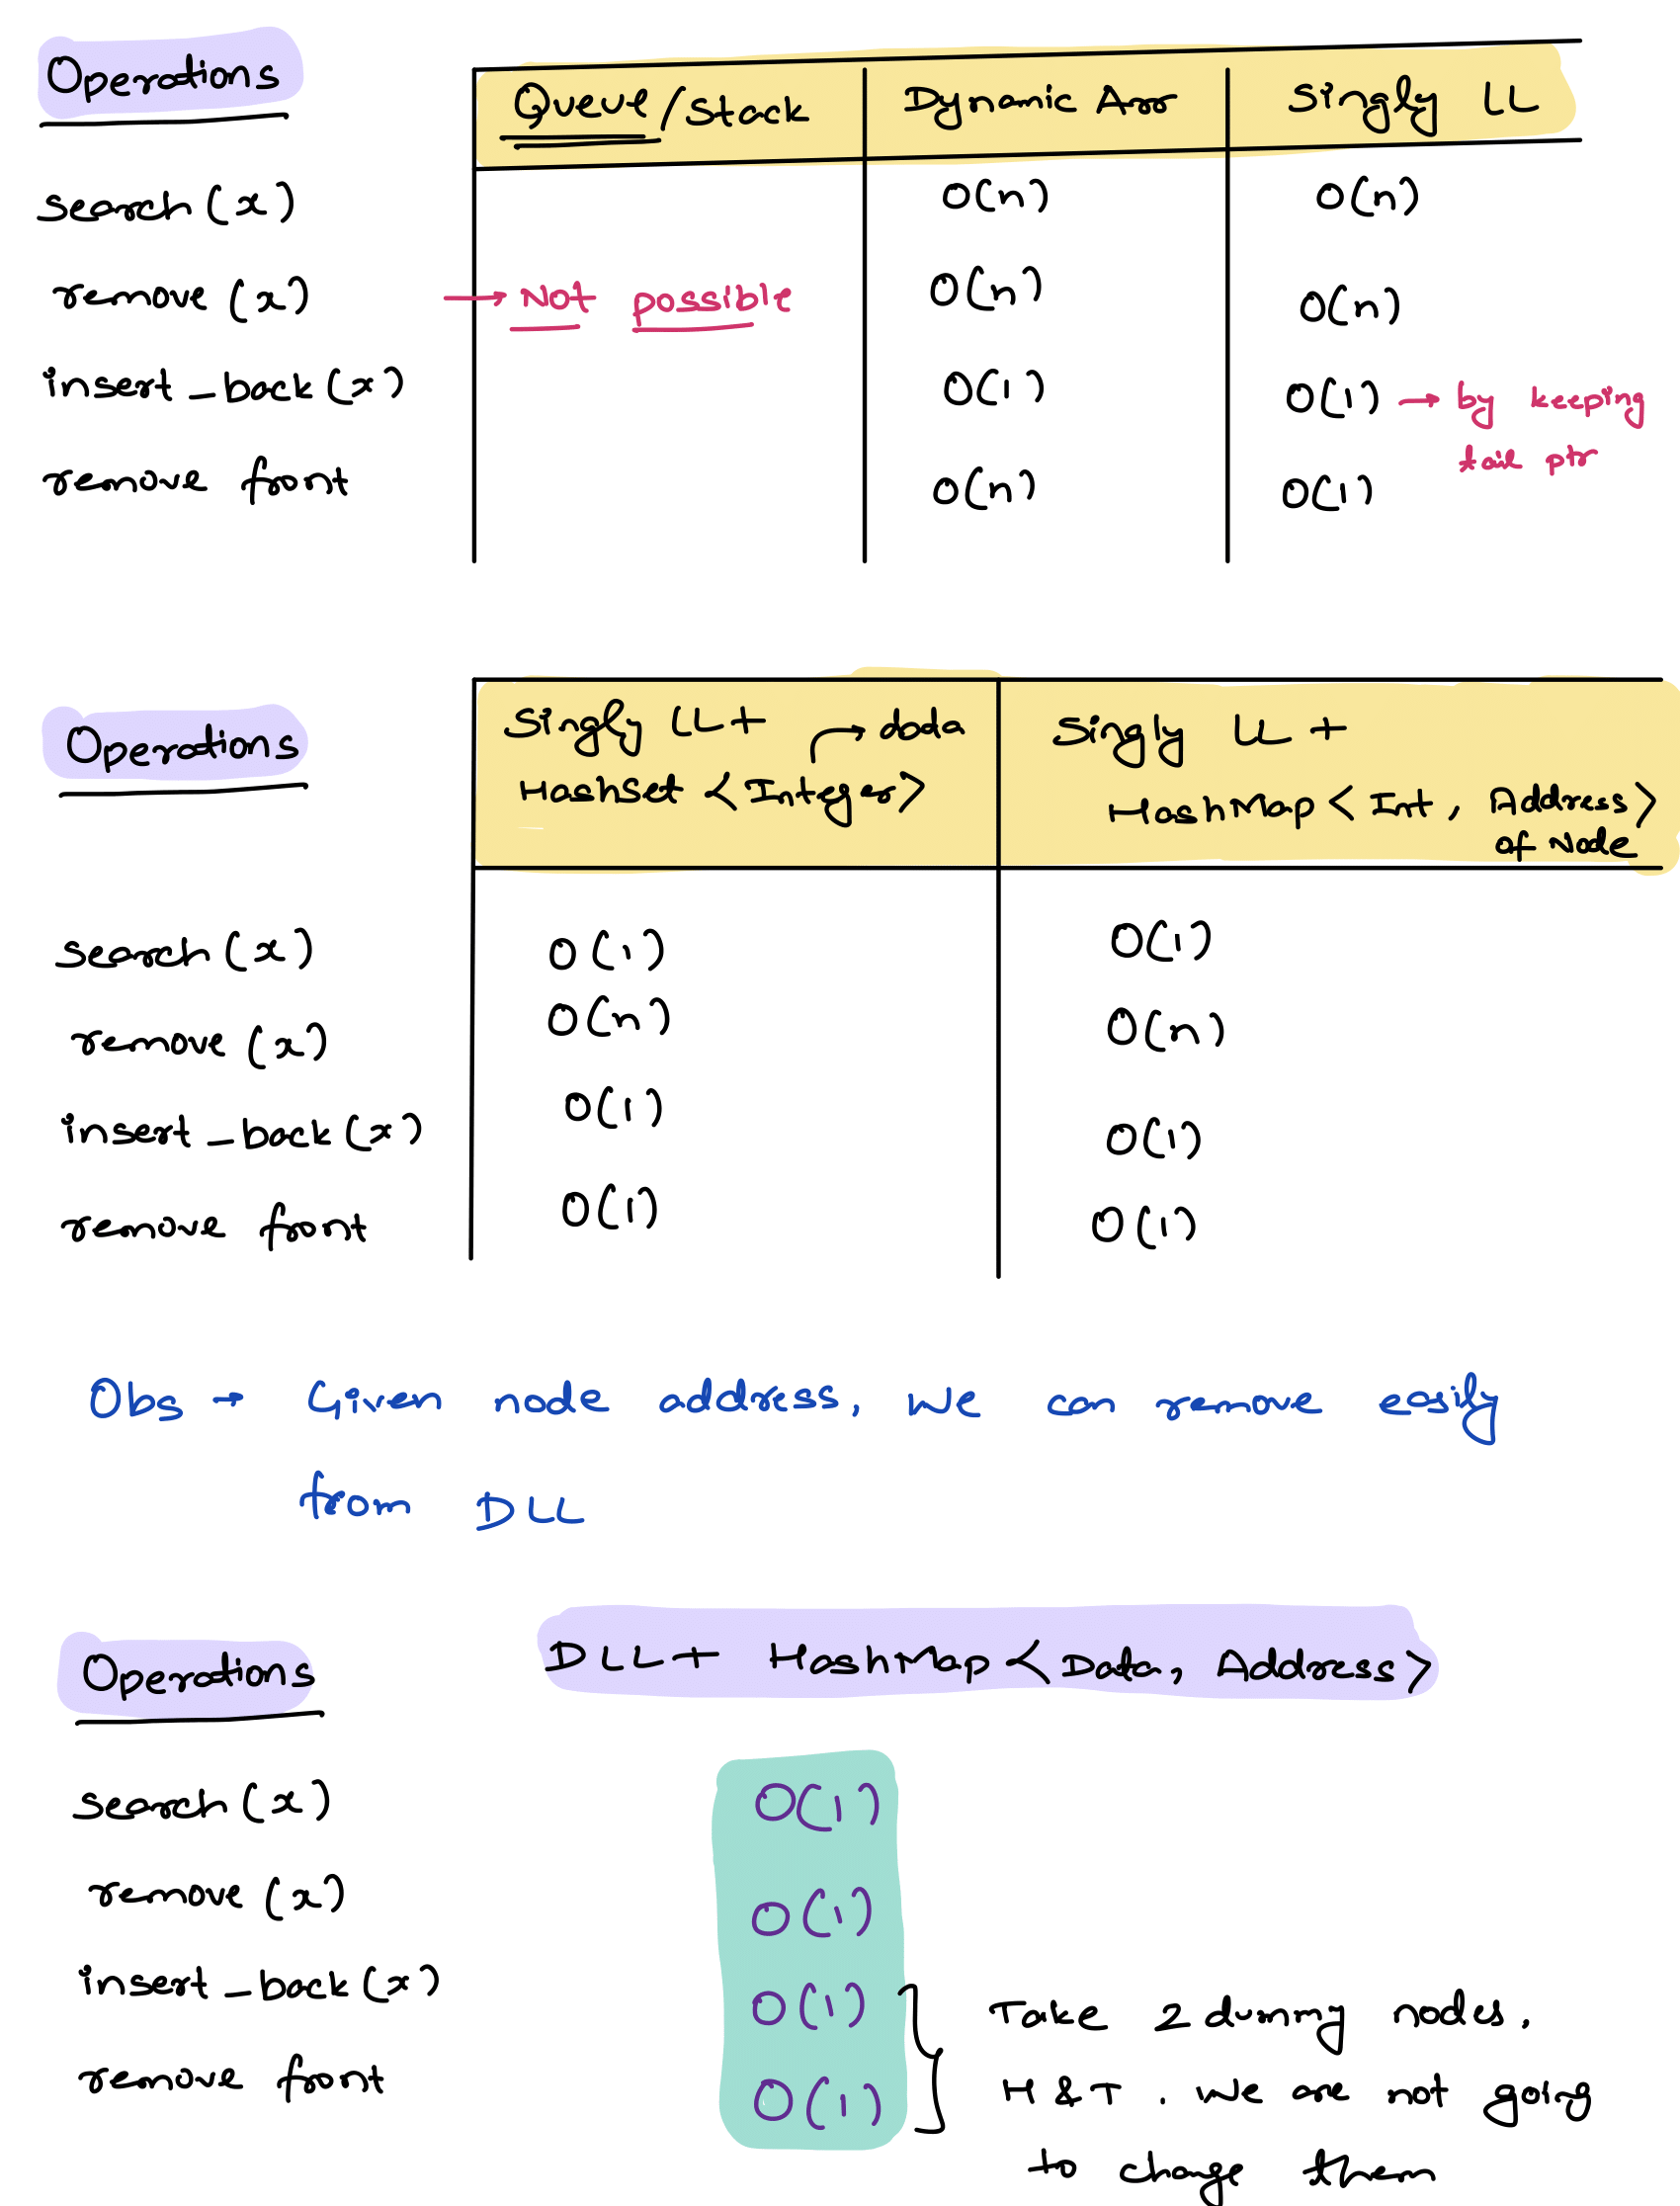 Operations
Queue/Stack Dynamic Arr Singly LL
search(x) O(n) O(n)
remove(x) → Not possible O(n) O(n)
insert_back(x) O(1) O(1) → by keeping
tail ptr
remove front O(n) O(1)
Operations
Singly LL+ → data Singly LL +
HashSet <Integer> HashMap < Int, Address>
of Node
search(x) O(1) O(1)
remove(x) O(n) O(n)
insert_back(x) O(1) O(1)
remove front O(1) O(1)
Obs → Given node address, we can remove easily
from DLL
Operations DLL+ HashMap <Data, Address>
search(x) O(1)
remove(x) O(1)
insert_back(x) O(1) } Take 2 dummy nodes.
remove front O(1) H&T. We are not going
to change them